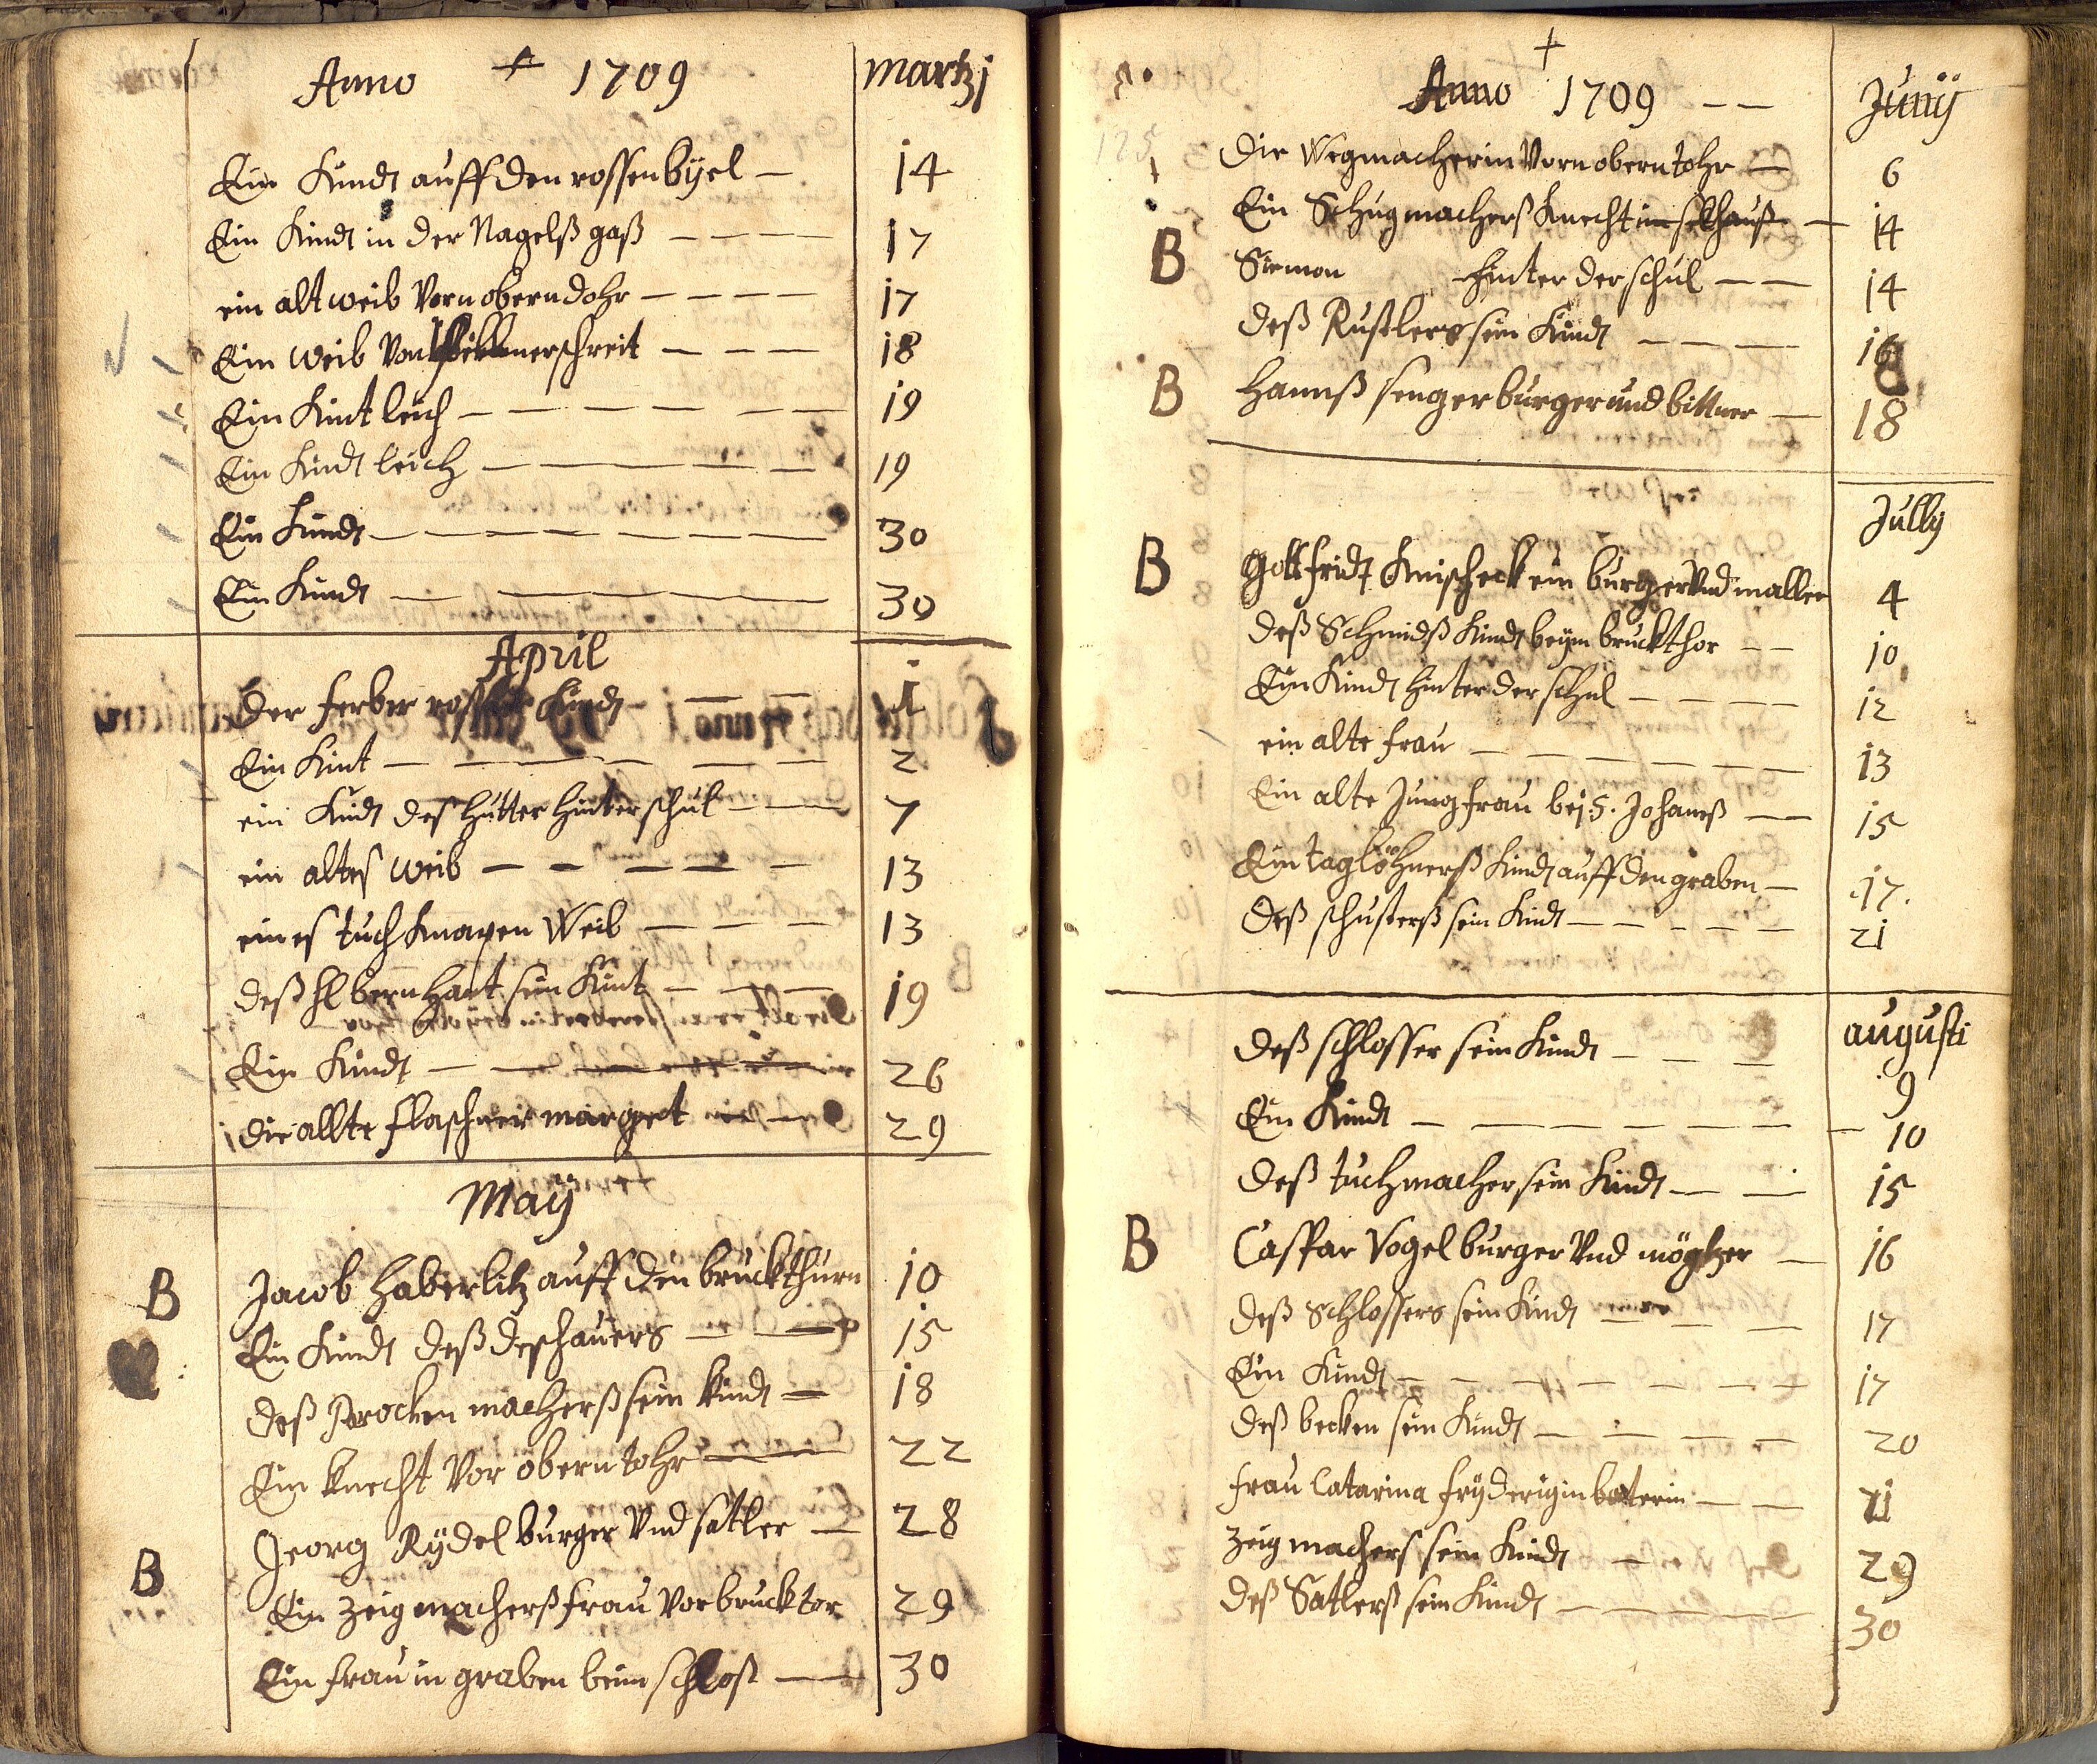 Anno + 1709 martzj
Ein Kindt auff den rossenbÿel — 14
Ein Kindt in der Nagelß gaß — 17
ein alt weib Vorn obern dohr — 17
Ein weib Von — 18
Ein Kint leich — 19
Ein Kindt leich — 19
Ein Kindt — 30
Ein Kindt — 30
April
der ferber Kindt — 1
Ein Kint — 2
ein Kindt des hutter hinter schul — 7
ein altes weib — 13
eines tuch Knapen Weib — 13
deß bernhart sein Kint — 19
Ein Kindt — 26
die allte flaschner marget — 29
Maÿ
B Jacob Haberlitz auff den bruckthurn 10
Ein Kindt deß deschauers — 15
deß Procken macherß sein kindt — 18
Ein knecht Vor obern tohr — 22
B Georg Rÿdel burger Vnd satler — 28
Ein Zeigmacherß frau Vor brucktor 29
Ein frau in graben beim schloß — 30
+
Anno 1709 — Junÿ
Die Wegmacherin Vorn obern tohr — 6
Ein Schugmacherß Knecht im — 14
B Siemon hinter der schul — 14
deß Rustlers sein Kindt — 16
B Hannß senger burger und bittner — 18
Jully
B gottfridt Knischeck ein burger Vnd maller 4
deß Schmidß Kindt beÿm bruckthor — 10
Ein Kindt hinter der schul — 12
ein alte frau — 13
Ein alte Jungfrau beÿ S. Johanß — 15
Ein taglöhnerß Kindt auff den graben — 17.
deß schusterß sein Kindt — 21
augusti
deß schlosser sein Kindt — 9
Ein Kindt — 10
deß tuchmacher sein Kindt — 15
B Caspar Vogel burger Vnd mögtzer — 16
deß Schlossers sein Kindt — 17
Ein Kindt — 17
deß becken sein Kindt — 20
frau Catarina frÿderigin baterin — 21
Zeigmachers sein Kindt — 29
deß Satlerß sein Kindt — 30